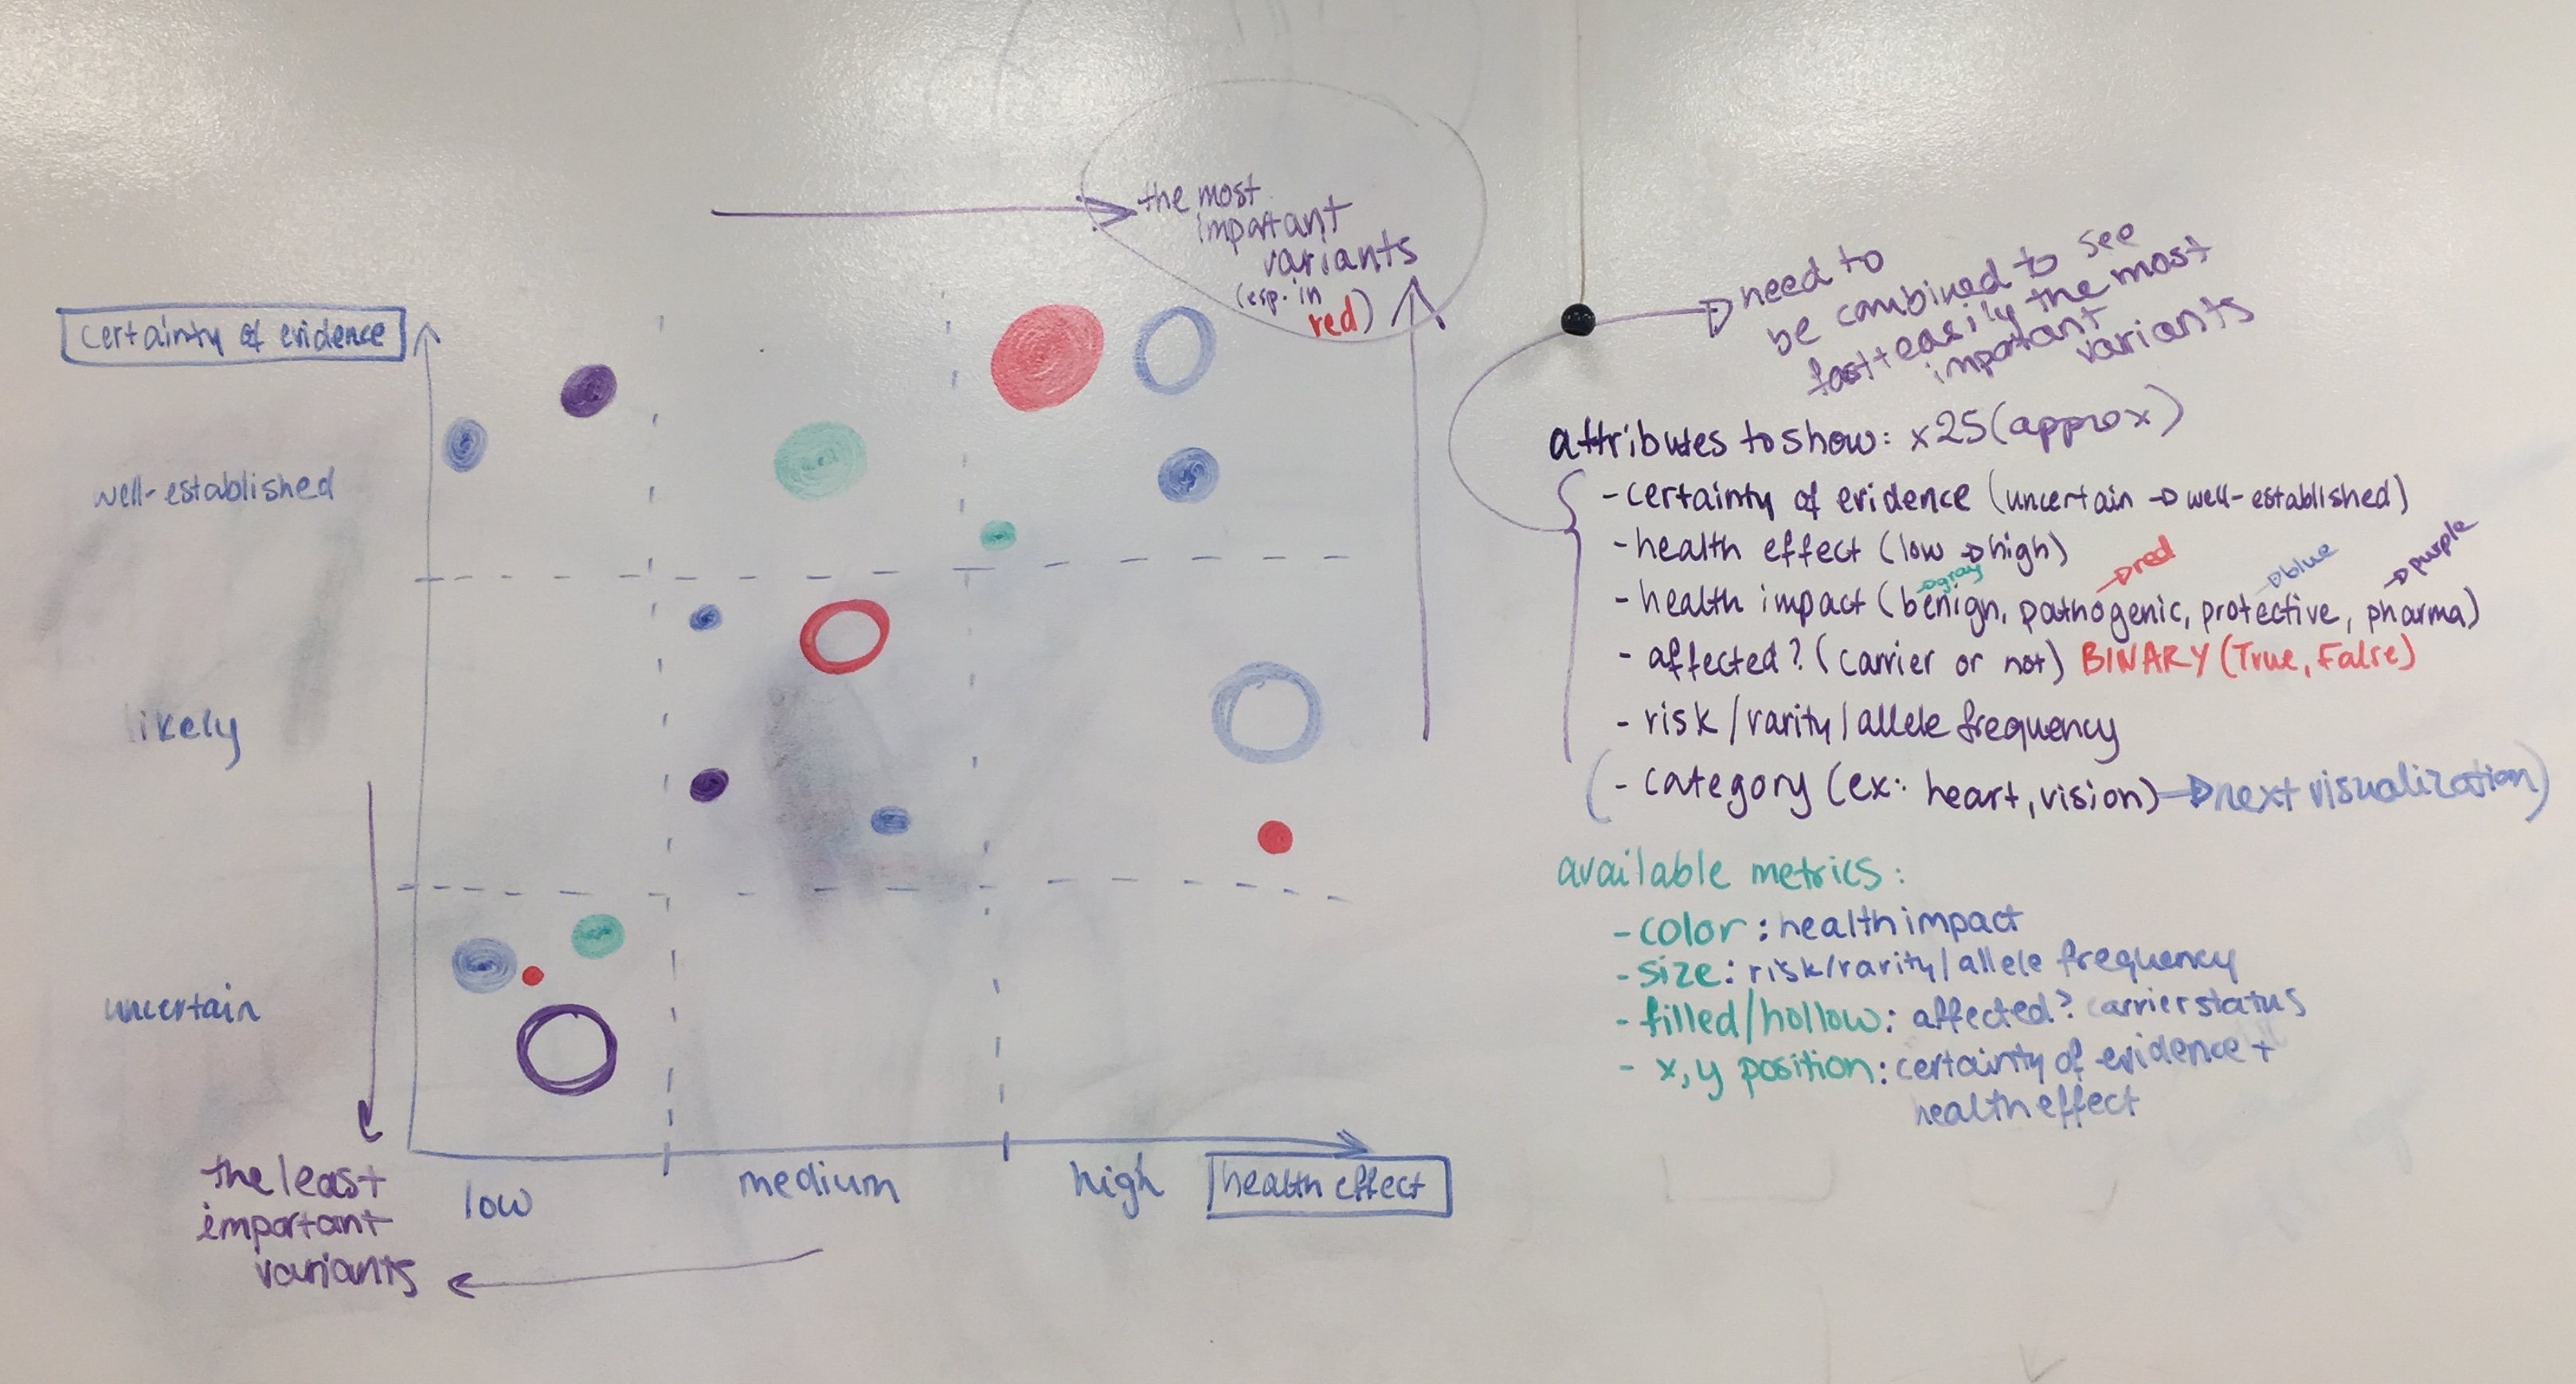 the most
important
variants
(esp. in
red)
certainty of evidence
well-established
likely
uncertain
the least
important
variants
low
medium
high
health effect
need to
be combined to see
fast + easily the most
important
variants
attributes to show: x25 (approx)
- certainty of evidence (uncertain → well-established)
- health effect (low → high)
→ gray → red → blue → purple
- health impact (benign, pathogenic, protective, pharma)
- affected? (carrier or not) BINARY (True, False)
- risk / rarity / allele frequency
(- category (ex: heart, vision) → next visualization)
available metrics:
- color: health impact
- size: risk/rarity/allele frequency
- filled/hollow: affected? carrier status
- x, y position: certainty of evidence +
health effect